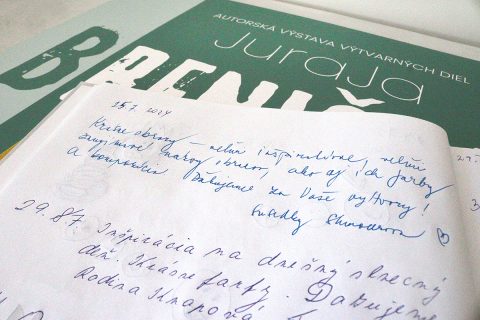 AUTORSKÁ VÝSTAVA VÝTVARNÝCH DIEL
Juraja
25.7. 2024
Krásne obrazy – veľmi inšpiratívne, veľmi
zaujímavé názvy obrazov, ako aj ich farby
a kompozícia. Ďakujeme za Vaše výtvory!
29.
29.87. Inšpirácia na dnešný slnečný
deň. Krásne farby. Ďakujeme
Rodina Knapová